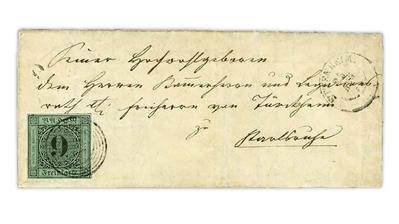 Seiner Hochwohlgeboren
dem Herrn Kammerherrn und Legations
rath Freiherrn von Türckheim
zu
Karlsruhe
BADEN
9
Freimarke